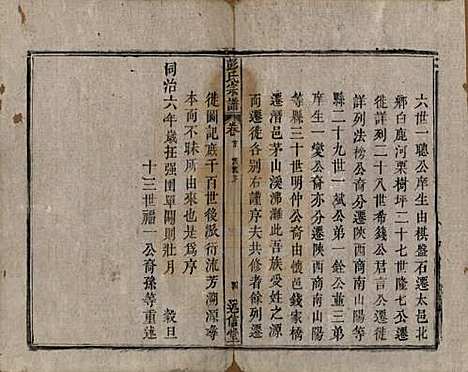 六世一聰公庠生由棋盤石遷太邑北
鄉白鹿河栗樹坪二十七世隆七公遷
徙詳列二十八世希錢公君言公遷徙
詳列法榜公裔分遷陝西商南山陽
縣二十九世一斌公弟一銓公董三弟
庠生一變公裔亦分遷陝西商南山陽
等縣三十世明仲公裔由懷邑錢家橋
遷潛邑茅山溪沸灘此吾族受姓之源
而遷徙各別右謹序夫共修者餘列遷
彭氏宗譜 卷首
四 述信堂
徙圖記庶千百世後溦衍流芳溯源尋
本而不昧所由來也是為序
同治六年歲在强圉單閼則壯月 穀旦
十三世福一公裔孫等重述